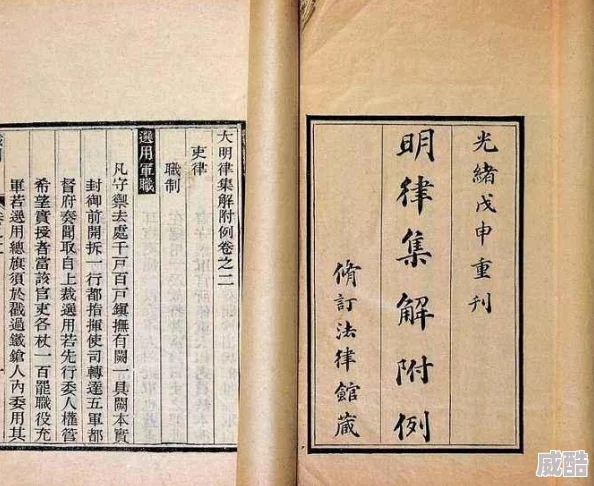 光緒戊申重刊
明律集解附例
脩訂法律館藏
大明律集解附例卷之二
吏律
職制
選用軍職
凡守禦去處千戶百戶鎮撫有闕一具闕本實
封御前開拆一行都指揮使司轉達五軍都
督府奏聞取自上裁選用若先行委人權管
希望實授者當該官吏各杖一百罷職役充
軍若選用總旗須於戳過鐵鎗人內委用其
威酷